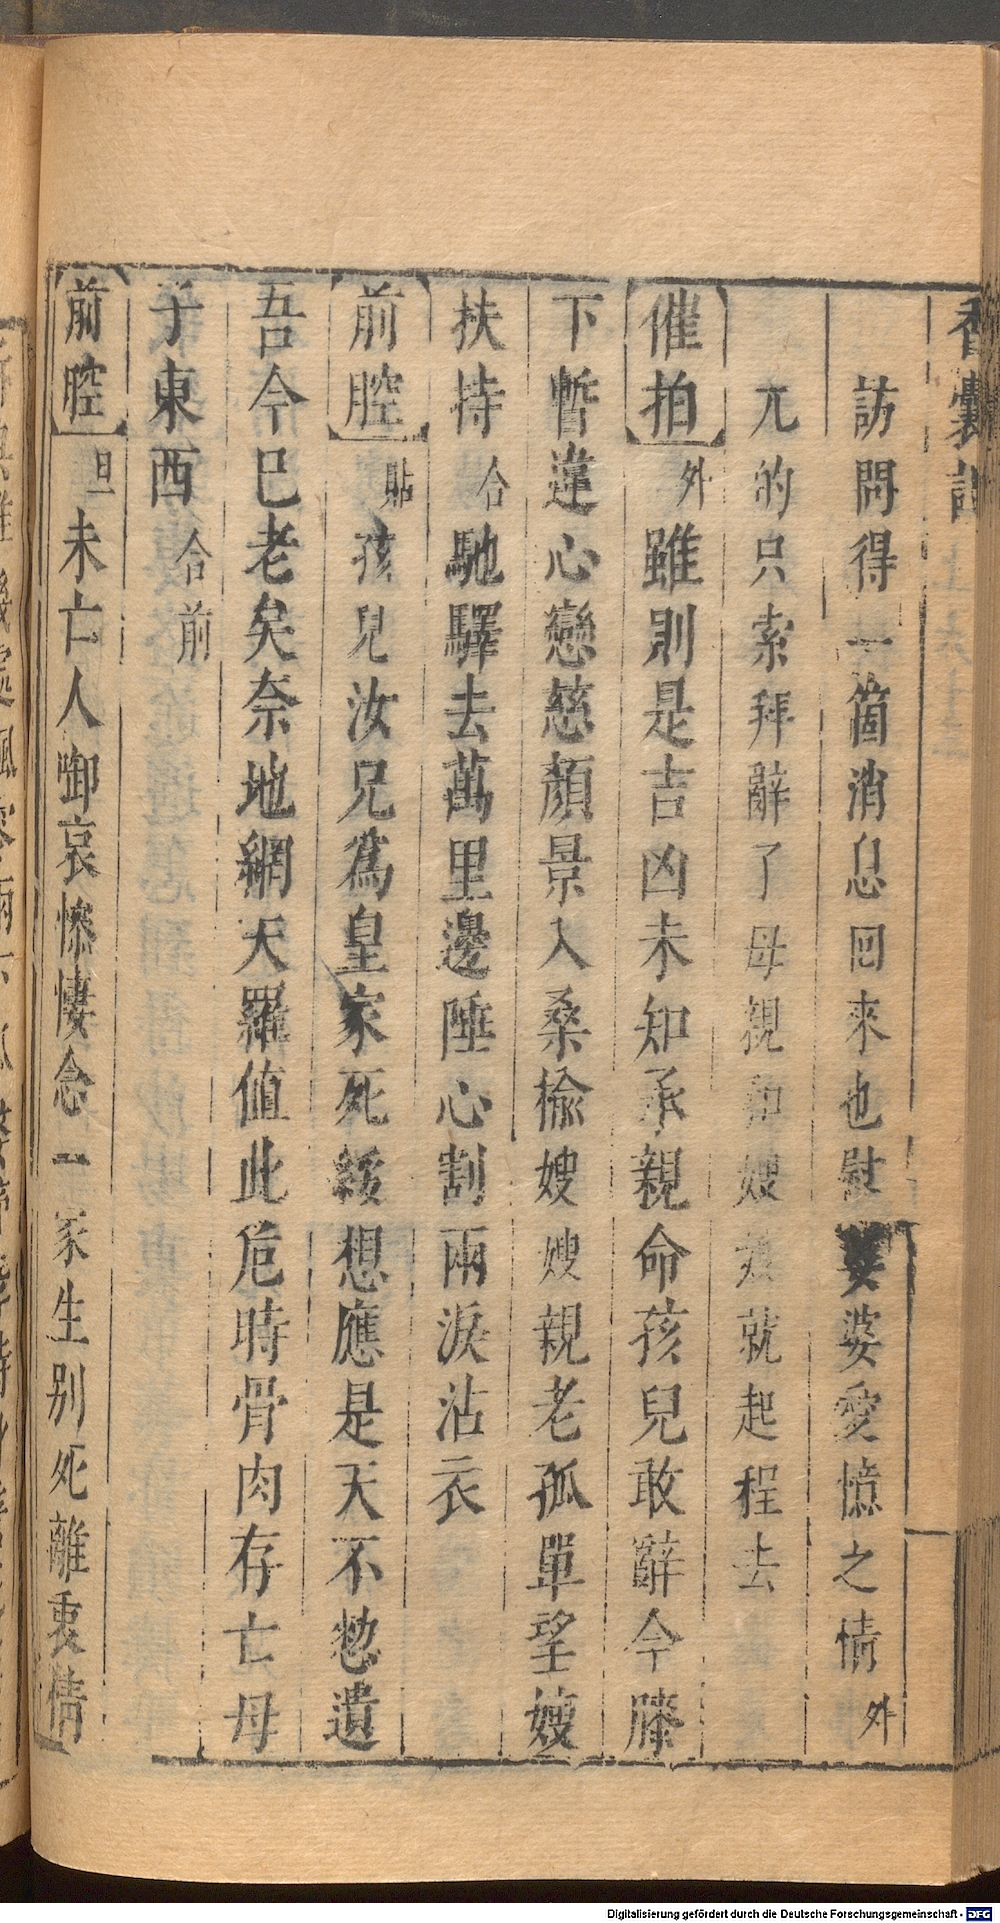 香囊記
訪問得一箇消息回來也慰婆婆愛憶之情外
兀的只索拜辭了母親和嫂嫂就起程去
催拍 外 雖則是吉凶未知承親命孩兒敢辭今膝
下暫違心戀慈顏景入桑榆嫂嫂親老孤單望嫂
扶持 合 馳驛去萬里邊陲心割兩淚沾衣
前腔 貼 孩兒汝兄爲皇家死綏想應是天不憖遺
吾今已老矣奈地網天羅值此危時骨肉存亡母
子東西 合前
前腔 旦 未亡人啣哀慘悽念一家生別死離衷情
Digitalisierung gefördert durch die Deutsche Forschungsgemeinschaft - DFG